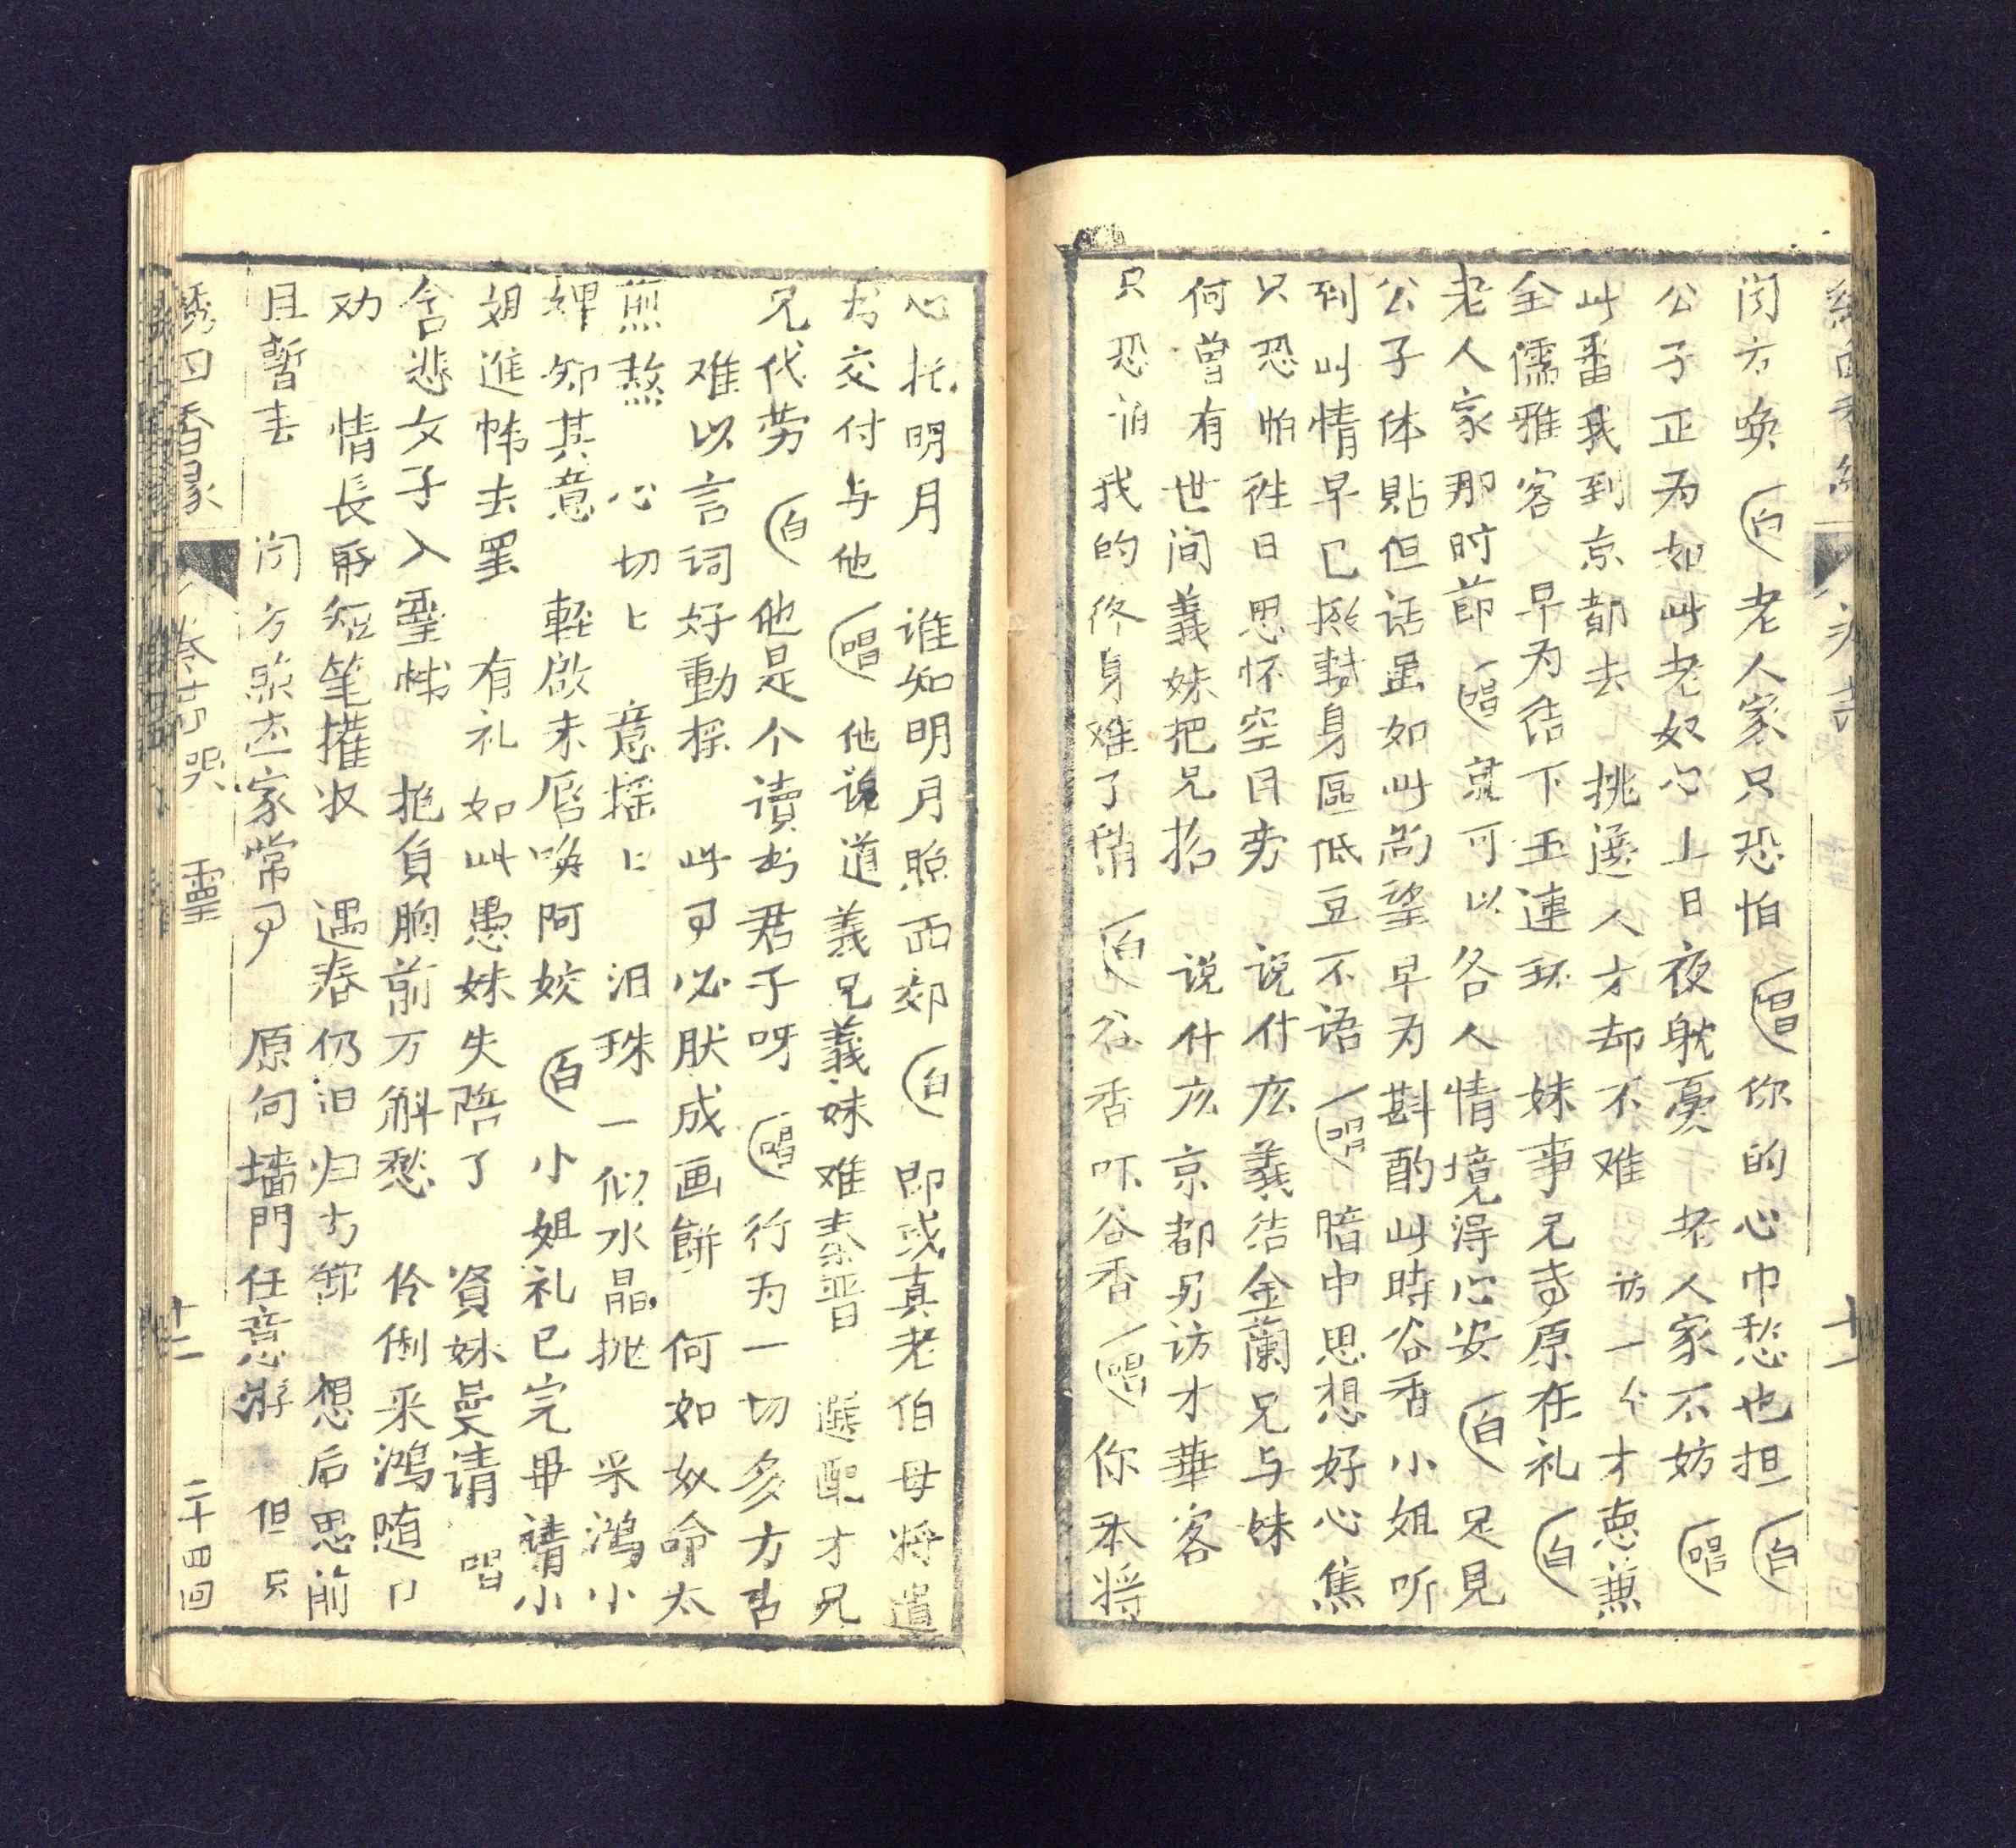 闵方唤 白 老人家只恐怕 唱 你的心中愁也担 白
公子正为如此老奴心上日夜耽憂 老人家不妨 唱
此番我到京都去 挑选人才却不难 访一个才德兼
全儒雅客 早为结下玉连环 妹事兄 原在礼 白
老人家那时節 唱 就可以各人情境得心安 白 足見
公子体貼但话虽如此尚望早为斟酌此時谷香小姐听
到此情早已 身區低豆不语 唱 暗中思想好心焦
只恐怕往日思怀空目劳 说什庅義结金蘭兄与妹
何曾有世间義妹把兄招 说什庅京都另访才華客
只恐誚我的终身难了稍 白 谷香吓谷香 唱 你本将
心托明月 谁知明月照西郊 白 即或真老伯母将遣
为交付与他 唱 他说道義兄義妹难秦晋 選配才兄
兄代劳 白 他是个读书君子呀 唱 行为一切多方
难以言词好動探 此事必朕成画餅 何如奴命太
煎熬 心切匕 意摇匕 泪珠一似水晶抛 采鴻小
婢知其意 軽啟朱唇唤阿姣 白 小姐礼已完畢請小
姐進帏去罢 有礼如此愚妹失陪了 資妹曼请 唱
含悲女子入靈帏 抱負胸前万斛愁 伶俐采鴻随卩
劝 情長帋短笔攉收 遇春仍旧归 想后思前
且暫丢 闵方 家常事 原向墙門任意游 但只
绣囙香缘 哭 靈 十二 二十四回
十一